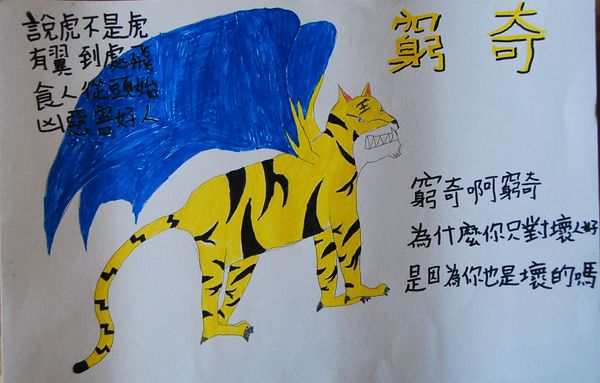 窮奇
說虎不是虎
有翼到處飛
食人從頭始
凶惡害好人
王
窮奇啊窮奇
為什麼你只對壞人好
是因為你也是壞的嗎